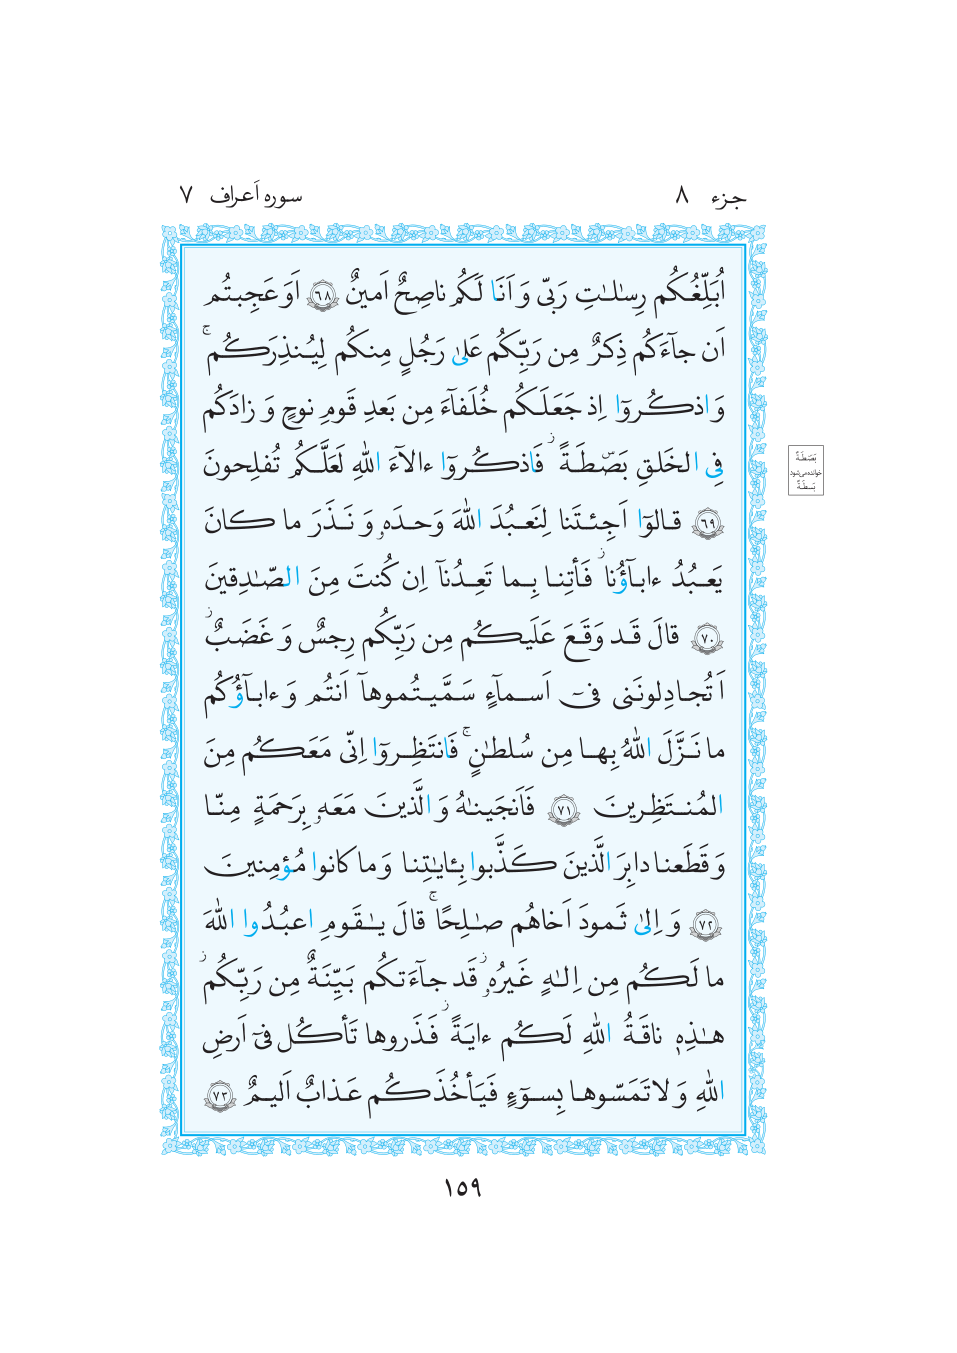 جزء ۸
سوره اَعراف ۷
اُبَلِّغُكُم رِسٰلٰتِ رَبّى وَ اَنَا لَكُم ناصِحٌ اَمينٌ ﴿٦٨﴾ اَوَ عَجِبتُم
اَن جآءَكُم ذِكرٌ مِن رَبِّكُم عَلىٰ رَجُلٍ مِنكُم لِيُنذِرَكُم ۚ
وَ اذكُروٓا اِذ جَعَلَكُم خُلَفآءَ مِن بَعدِ قَومِ نوحٍ وَ زادَكُم
فِى الخَلقِ بَصۜطَةً ۖ فَاذكُروٓا ءالآءَ اللّٰهِ لَعَلَّكُم تُفلِحونَ
﴿٦٩﴾ قالوٓا اَجِئتَنا لِنَعبُدَ اللّٰهَ وَحدَهۥ وَ نَذَرَ ما كانَ
يَعبُدُ ءابآؤُنا ۖ فَأتِنا بِما تَعِدُنآ اِن كُنتَ مِنَ الصّٰدِقينَ
﴿٧٠﴾ قالَ قَد وَقَعَ عَلَيكُم مِن رَبِّكُم رِجسٌ وَ غَضَبٌ ۖ
اَتُجادِلونَنى فىٓ اَسمآءٍ سَمَّيتُموهآ اَنتُم وَ ءابآؤُكُم
ما نَزَّلَ اللّٰهُ بِها مِن سُلطٰنٍ ۚ فَانتَظِروٓا اِنّى مَعَكُم مِنَ
المُنتَظِرينَ ﴿٧١﴾ فَاَنجَينٰهُ وَ الَّذينَ مَعَهۥ بِرَحمَةٍ مِنّا
وَ قَطَعنا دابِرَ الَّذينَ كَذَّبوا بِـٔايٰتِنا وَ ما كانوا مُؤمِنينَ
﴿٧٢﴾ وَ اِلىٰ ثَمودَ اَخاهُم صٰلِحًا ۚ قالَ يٰقَومِ اعبُدُوا اللّٰهَ
ما لَكُم مِن اِلٰهٍ غَيرُهۥ ۖ قَد جآءَتكُم بَيِّنَةٌ مِن رَبِّكُم ۖ
هٰذِهۦ ناقَةُ اللّٰهِ لَكُم ءايَةً ۖ فَذَروها تَأكُل فىٓ اَرضِ
اللّٰهِ وَ لا تَمَسّوها بِسوٓءٍ فَيَأخُذَكُم عَذابٌ اَليمٌ ﴿٧٣﴾
بَصَطَةً
خوانده می‌شود
بَسطَةً
١٥٩